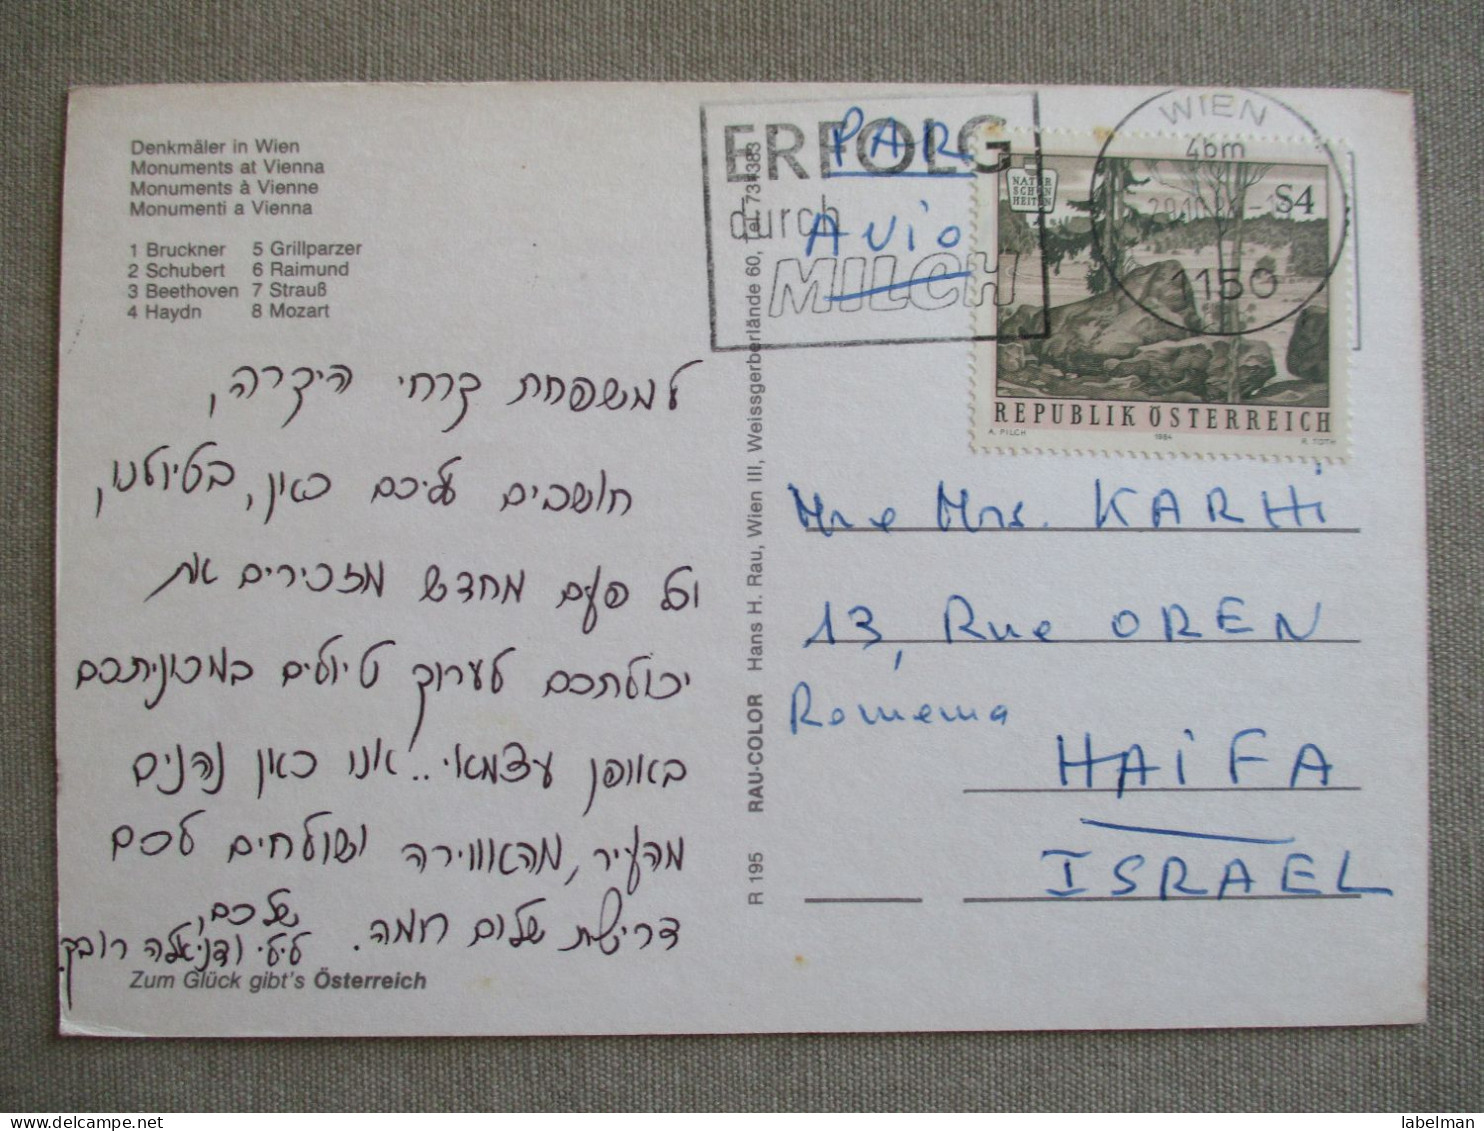 Denkmäler in Wien
Monuments at Vienna
Monuments à Vienne
Monumenti a Vienna
1 Bruckner 5 Grillparzer
2 Schubert 6 Raimund
3 Beethoven 7 Strauß
4 Haydn 8 Mozart
למשפחת קרחי היקרה,
חושבים עליכם כאן, בטיולנו,
וכל פעם מחדש מזכירים את
יכולתכם לערוך טיולים במכוניתכם
באופן עצמאי.. אנו כאן נהנים
מהעיר, מהאווירה ושולחים לכם
דרישת שלום חמה.
שלכם,
לילי ודניאלה רובק.
Zum Glück gibt's Österreich
R 195 RAU-COLOR Hans H. Rau, Wien III, Weissgerberlände 60, Tel. 731383
ERFOLG
durch
MILCH
PAR
AVio
WIEN
1150
NATUR
SCHÖN
HEITEN
S4
REPUBLIK ÖSTERREICH
A. PILCH 1984 K. TOTH
Mr e Mrs. KARHi
13, Rue OREN
Romema
HAiFA
ISRAEL
labelman